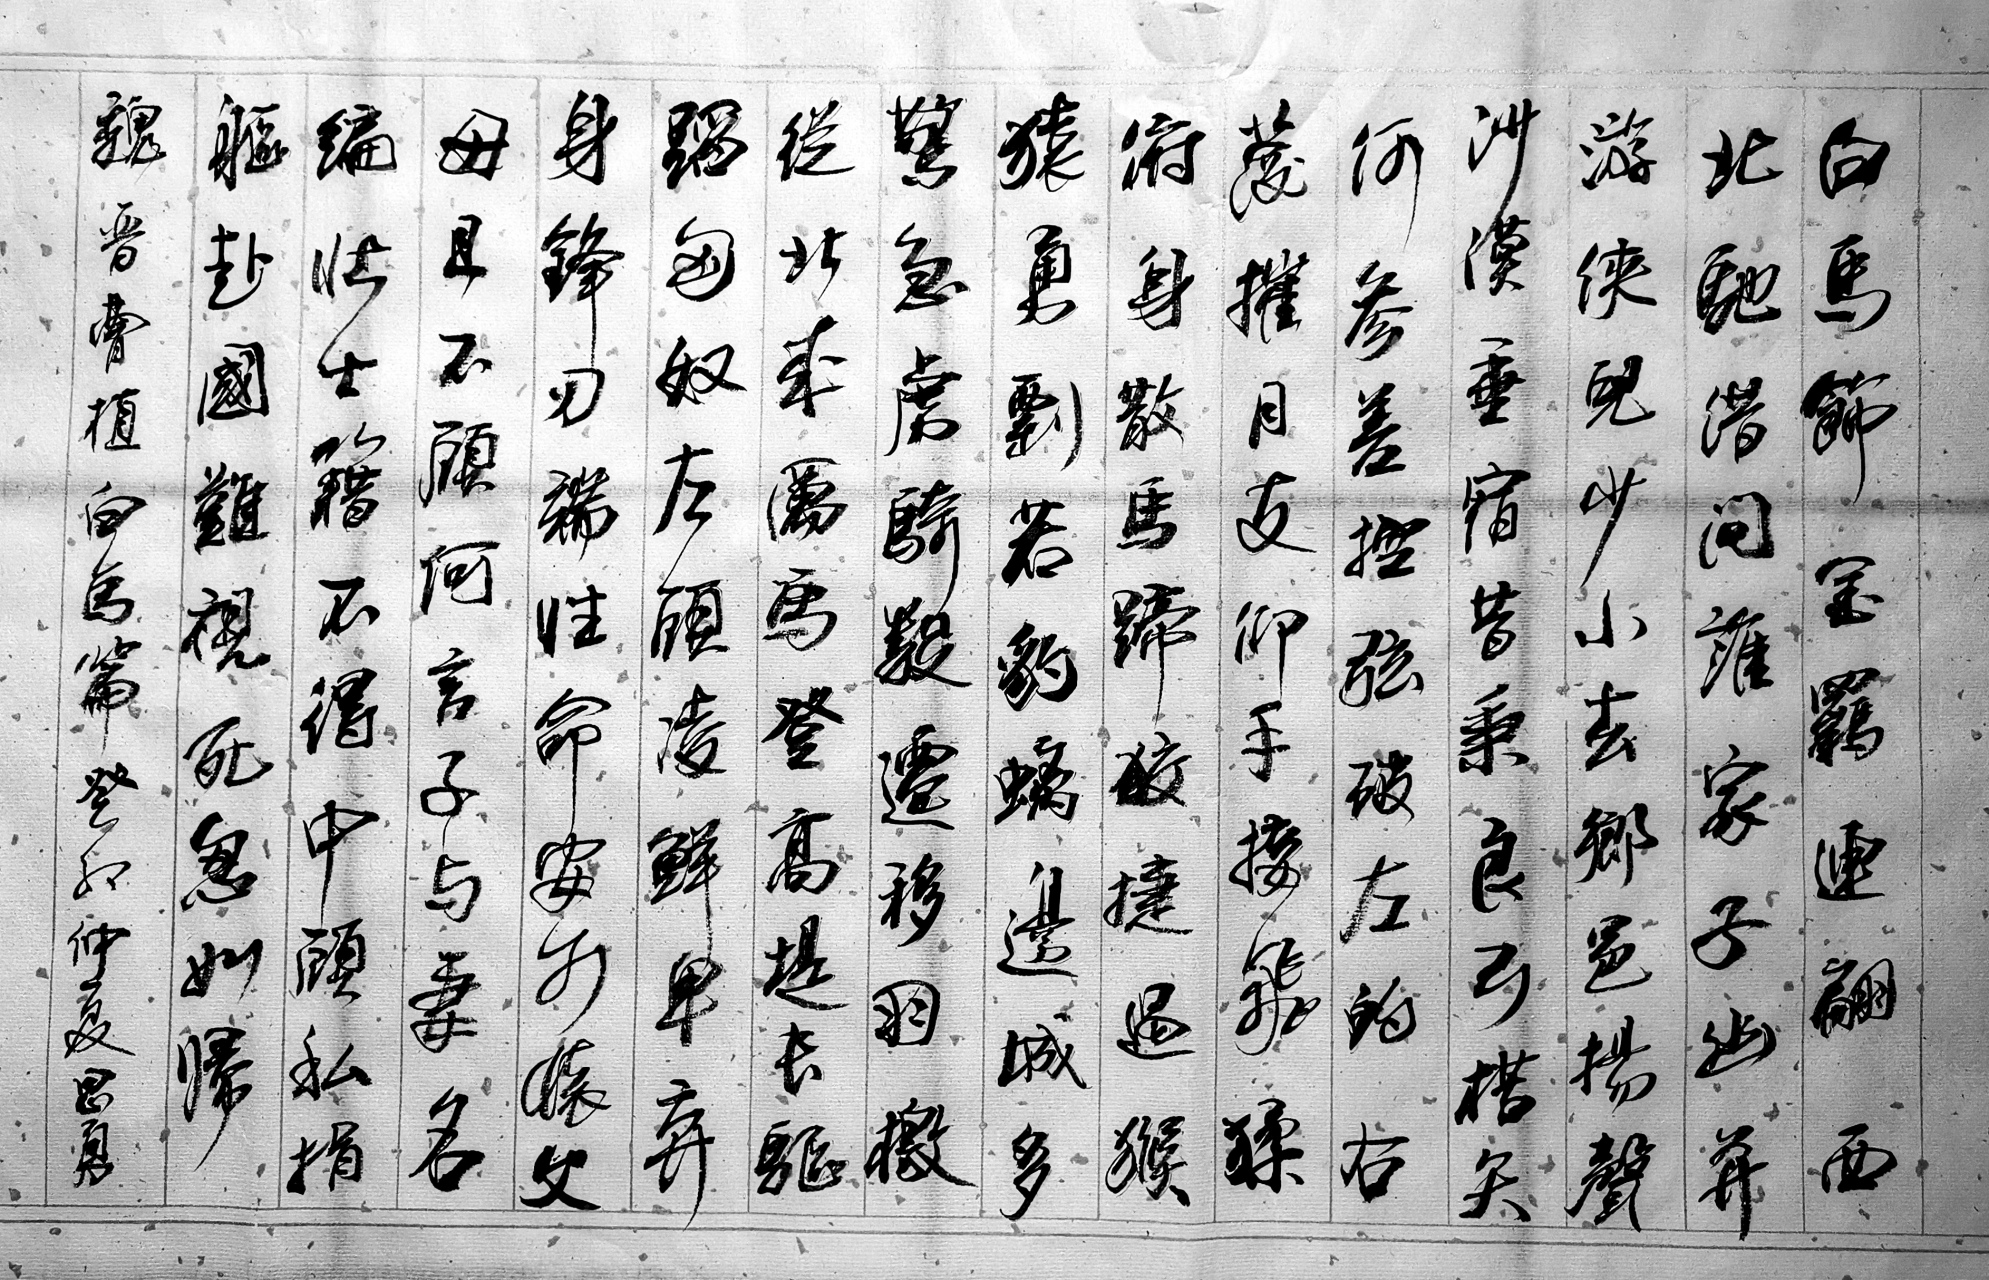 白馬飾金羈連翩西
北馳借問誰家子幽并
游俠兒少小去鄉邑揚聲
沙漠垂宿昔秉良弓楛矢
何參差控弦破左的右
發摧月支仰手接飛猱
俯身散馬蹄狡捷過猴
猿勇剽若豹螭邊城多
警急虜騎數遷移羽檄
從北來厲馬登高堤長驅
蹈匈奴左顧凌鮮卑弃
身鋒刃端性命安可懷父
母且不顧何言子与妻名
編壯士籍不得中顧私捐
軀赴國難視死忽如歸
魏晋曹植白馬篇癸卯仲夏